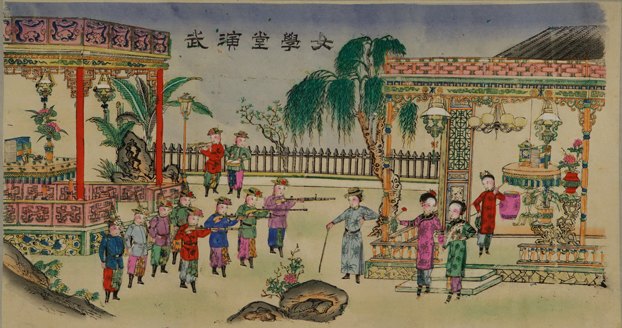 女學堂演武